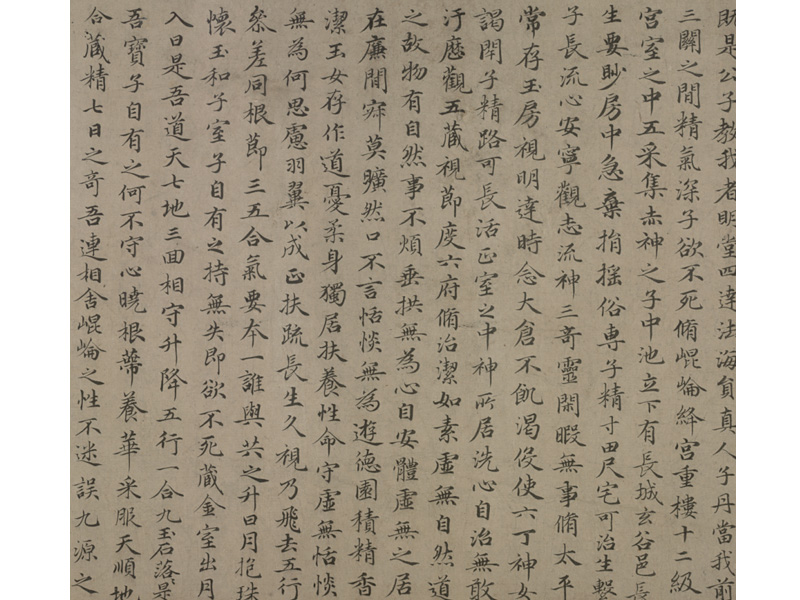 既是公子教我者明堂四達法海負真人子丹當我前
三關之間精氣深子欲不死脩崐崘絳宮重樓十二級
宮室之中五采集赤神之子中池立下有長城玄谷邑長
生要眇房中急棄捐搖俗専子精寸田尺宅可治生繫
子長流心安寧觀志流神三奇靈閑暇無事脩太平
常存玉房視明達時念大倉不飢渴伇使六丁神女
謁閇子精路可長活正室之中神所居洗心自治無敢
汙歷觀五藏視節度六府脩治潔如素虛無自然道
之故物有自然事不煩垂拱無為心自安體虛無之居
在廉間寂莫曠然口不言恬惔無為遊德園積精香
潔玉女存作道憂柔身獨居扶養性命守虛無恬惔
無為何思慮羽翼以成正扶疏長生久視乃飛去五行
叅差同根節三五合氣要夲一誰與共之升日月抱珠
懷玉和子室子自有之持無失即欲不死藏金室出月
入日是吾道天七地三回相守升降五行一合九玉石落落是
吾寶子自有之何不守心曉根蔕養華采服天順地
合藏精七日之奇吾連相舍崐崘之性不迷誤九源之